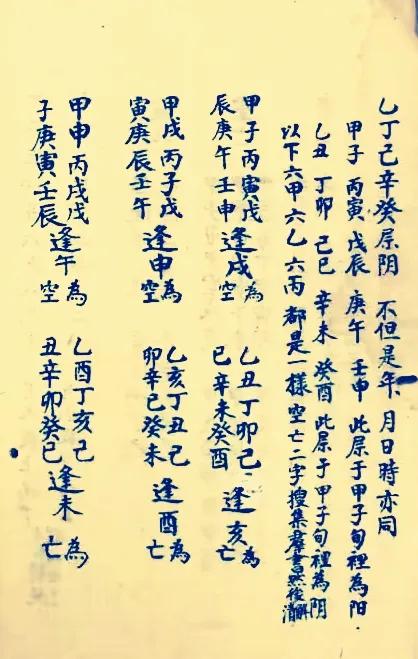 乙丁己辛癸屬阴 不但是年 月日時亦同
甲子 丙寅 戊辰 庚午 壬申 此屬于甲子旬裡為阳
乙丑 丁卯 己巳 辛未 癸酉 此屬于甲子旬裡為阴
以下六甲六乙六丙都是一樣空亡二字搜集羣書然後消解
甲子丙寅戊 為 乙丑丁卯己 為
辰庚午壬申 逢戌空 巳辛未癸酉 逢亥亡
甲戌丙子戊 為 乙亥丁丑己 為
寅庚辰壬午 逢申空 卯辛巳癸未 逢酉亡
甲申丙戌戊 為 乙酉丁亥己 為
子庚寅壬辰 逢午空 丑辛卯癸巳 逢未亡